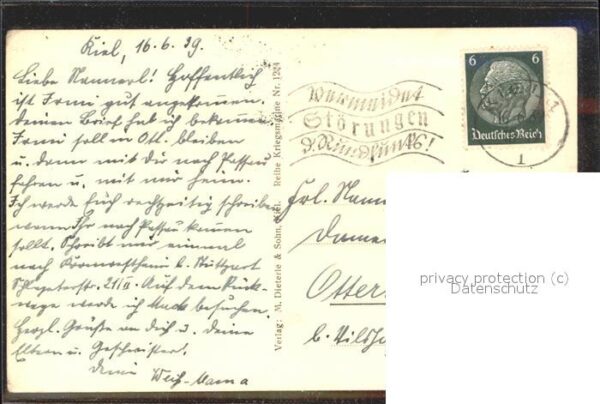 Kiel, 16.6.39.
Liebe Nannerl! Hoffentlich
ist Irmi gut angekommen.
Deinen Brief hab ich bekommen.
Irmi soll in Ott. bleiben
u. dann mit dir nach Passau
fahren u. mit mir heim.
Ich werde Euch rechtzeitig schreiben
wann Ihr nach Passau kommen
sollt. Schreibt mir einmal
nach Kornwestheim b. Stuttgart
Schlageterstr. 21/II. Auf dem Rück-
wege werde ich besuchen.
Herzl. Grüße an dich u. deine
Eltern u. Geschwister.
deine
Verlag: M. Dieterle & Sohn, Kiel. Reihe Kriegsmarine Nr. 1224
Vermeidet
Störungen
d. Rundfunks!
6 6
Deutsches Reich
1
Frl. Nann
Dame
Otter
b. Vilsho
privacy protection (c)
Datenschutz